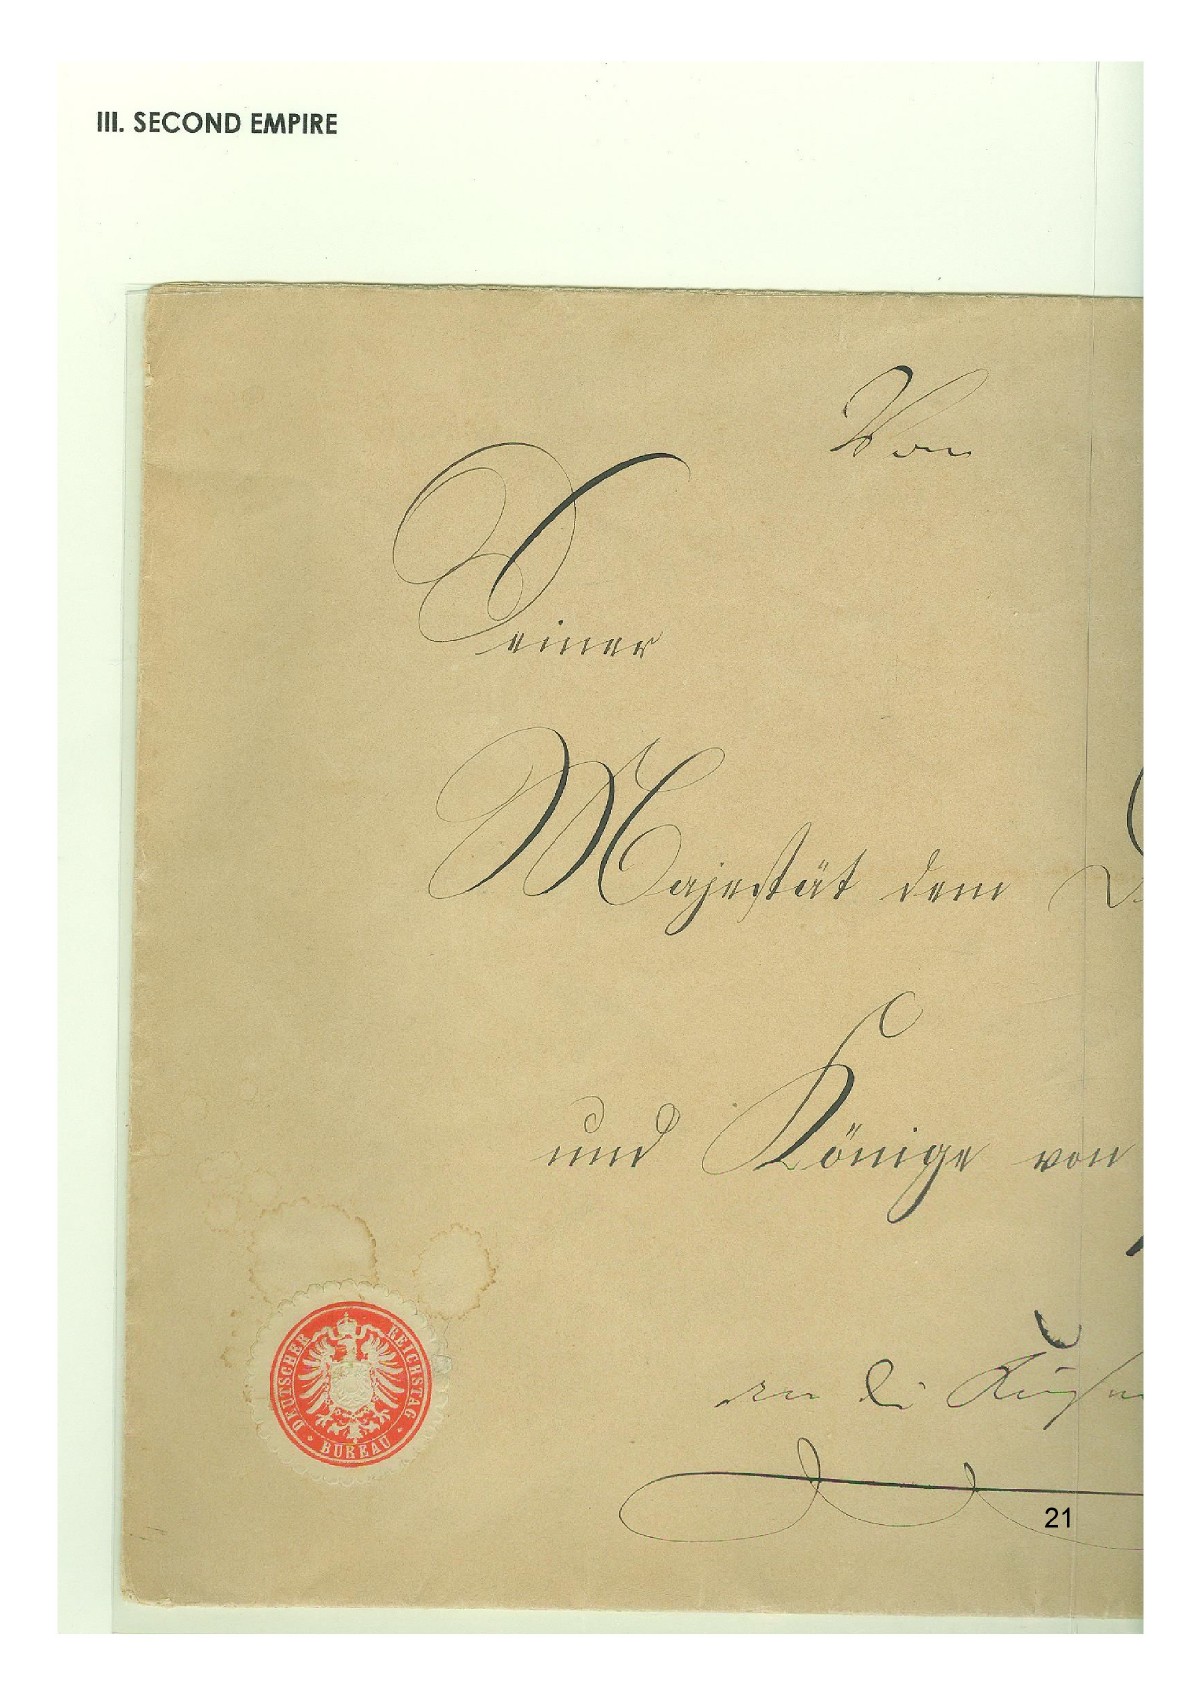 III. SECOND EMPIRE
Von
Seiner
Majestät dem
und Könige von
DEUTSCHER REICHSTAG
· BUREAU ·
21